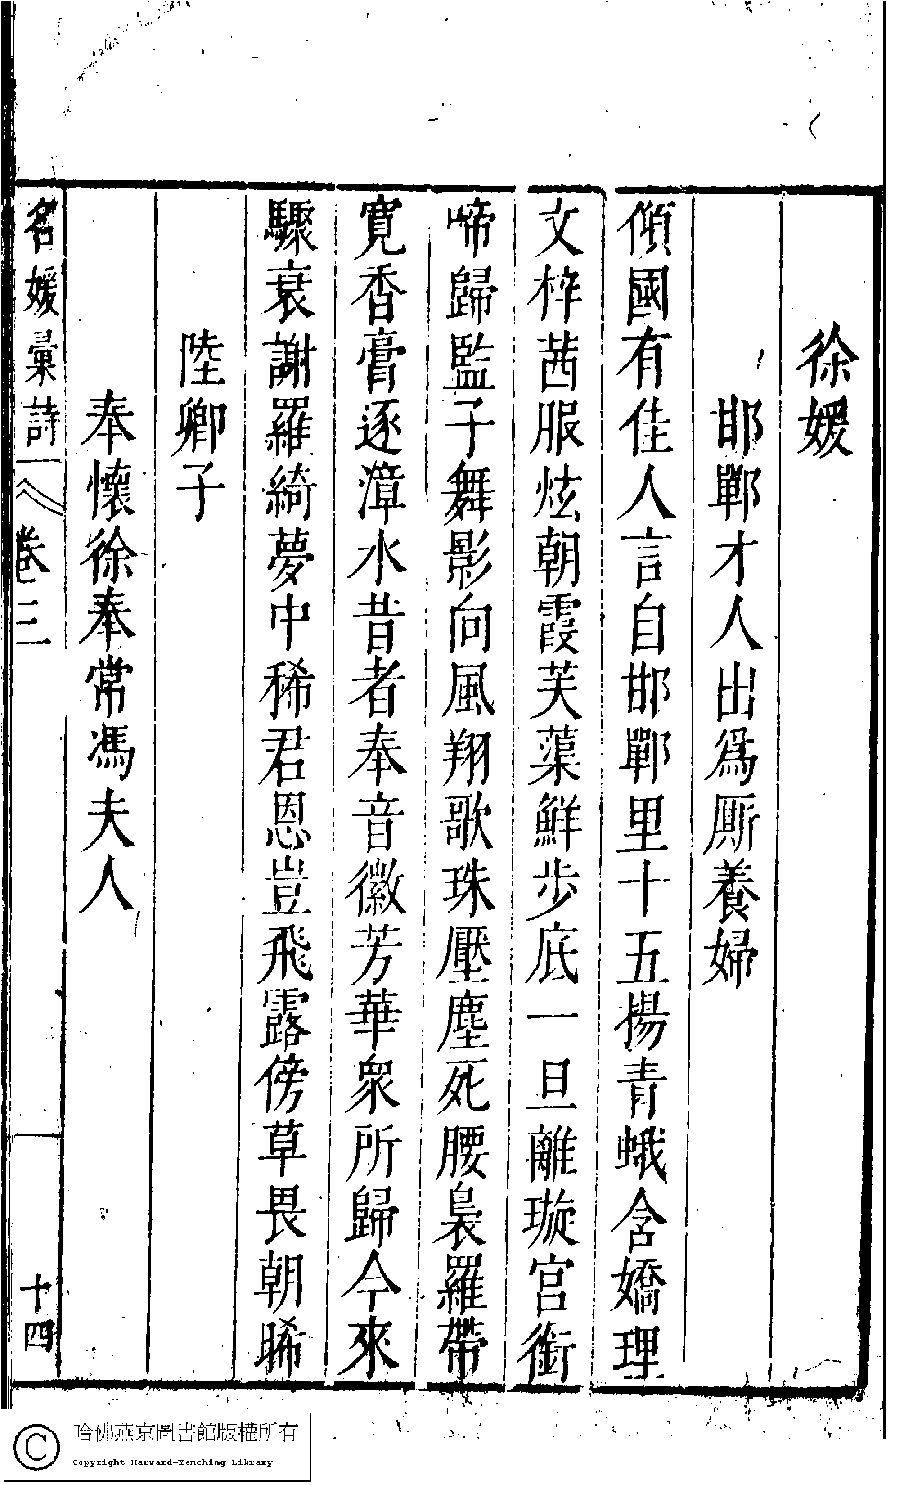 徐媛
邯鄲才人出爲厮養婦
傾國有佳人言自邯鄲里十五揚青蛾含嬌理
文梓茜服炫朝霞芙蕖鮮步底一旦離璇宮銜
啼歸監子舞影向風翔歌珠壓塵死腰裊羅帶
寬香膏逐漳水昔者奉音徽芳華衆所歸今來
驟衰謝羅綺夢中稀君恩豈飛露傍草畏朝晞
陸卿子
奉懷徐奉常馮夫人
名媛彙詩 卷三 十四
哈佛燕京圖書館版權所有
Copyright Harvard-Yenching Library